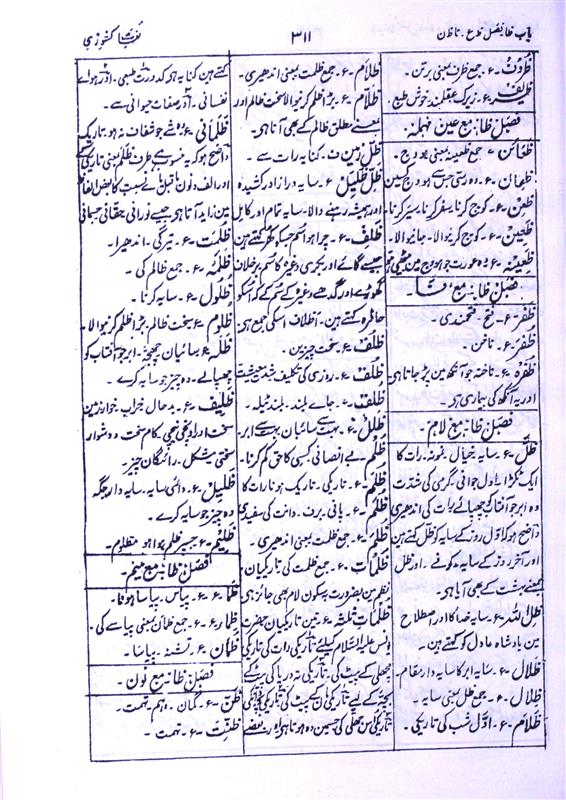 باب ظا فصل ظ ع ۔ تا ظ ن
۳۱۱
لغات کشوری
ظروف ۔ ع ۔ جمع ظرف بمعنی برتن ۔
ظریف ۔ ع ۔ زیرک عقلمند خوش طبع ۔
فصل ظا مع عین مہملہ
ظعائن ۔ ع ۔ جمع ظعینہ بمعنی ہودج ۔
ظعان ۔ ع ۔ وہ رسی جس سے ہودج کسیں
ظعن ۔ ع ۔ کوچ کرنا سفر کرنا ۔ سیر کرنا ۔
ظعین ۔ ع ۔ کوچ کرنیوالا ۔ جانیوالا ۔
ظعینہ ۔ ع ۔ وہ عورت جو ہودج مین بیٹھی ہو
فصل ظا مع فا ۔
ظفر ۔ ع ۔ فتح ۔ فتحمندی ۔
ظفر ۔ ع ۔ ناخن ۔
ظفرہ ۔ ع ۔ ناخنہ جو آنکھ مین پڑ جاتا ہی
اور یہ آنکھ کی بیماری ہی ۔
فصل ظا مع لام ۔
ظل ۔ ع ۔ سایہ خیال ۔ نمونہ ۔ رات کا
ایک ٹکڑا ۔ اول جوانی ۔ گرمی کی شدت
وہ ابر جو آفتاب کو چھپائے رات کی اندھیری
واضح ہو کہ اول روز کے سایہ کو ظل کہتے ہین
اور آخر روز کے سایہ کو فے ۔ اور ظل
بمعنے بہشت کے بھی آیا ہی ۔
ظل اللہ ۔ ع ۔ سایہ خدا کا اور اصطلاح
مین بادشاہ عادل کو کہتے ہین ۔
ظلال ۔ ع ۔ سایہ ابر کا سایہ دار مقام ۔
ظلال ۔ ع ۔ جمع ظل بمعنی سایہ ۔
ظلام ۔ ع ۔ اول شب کی تاریکی ۔
ظلام ۔ ع ۔ جمع ظلمت بمعنی اندھیری ۔
ظلام ۔ ع ۔ بڑا ظلم کرنیوالا سخت ظالم اور
بمعنے مطلق ظالم کے بھی آتا ہی ۔
ظل زمین ۔ ف ۔ کنایہ رات سے ۔
ظل ظلیل ۔ ع ۔ سایہ دراز اور کشیدہ
اور ہمیشہ رہنے والا ۔ سایہ تمام اور کامل
ظلف ۔ ع ۔ چرا ہوا سم جسکو کھر کہتے ہین
جیسے گائے اور بکری وغیرہ کا سم برخلاف
گھوڑے اور گدھے وغیرہ کے سم کے کہ اسکو
حافر کہتے ہین ۔ اظلاف اسکی جمع ہی
ظلف ۔ ع ۔ سخت چیزین ۔
ظلف ۔ ع ۔ روزی کی تکلیف شدت معیشت
ظلفت ۔ ع ۔ جاے بلند ۔ بلند ٹیلہ ۔
ظلل ۔ ع ۔ بہت سے سائبان بہت سے ابر ۔
ظلم ۔ ع ۔ بے انصافی کسی کا حق کم کرنا ۔
ظلم ۔ ع ۔ تاریکی ۔ تاریک ہونا رات کا
ظلم ۔ ع ۔ پانی ۔ برف ۔ دانت کی سفیدی
ظلم ۔ ع ۔ جمع ظلمت بمعنی اندھیری ۔
ظلمات ۔ ع ۔ جمع ظلمت کی تاریکیان
نظم مین بضرورت بسکون لام بھی جائز ہی
ظلمات ثلثہ ۔ ع ۔ تین تاریکیان حضرت
یونس علیہ السلام کیلئے تاریکی رات کی تاریکی
مچھلی کے پیٹ کی ۔ تاریکی تہ دریا کی
کہتے ہین کنایہ ہو کدورت طبعی ۔ اور ہواے
نفسانی ۔ اور صفات حیوانی سے ۔
ظلمانی ۔ ع ۔ وہ شے جو شفاف نہ ہو ۔ تاریک
واضح ہو کہ یہ منسوب ہی طرف ظلم بمعنی تاریکی کے
اور الف و نون قبل یاے نسبت کا بعض الفاظ
مین زاید آتا ہو جیسے نورانی حقانی جسمانی
ظلمت ۔ ع ۔ تیرگی ۔ اندھیرا ۔
ظلمہ ۔ ع ۔ جمع ظالم کی ۔
ظلول ۔ ع ۔ سایہ کرنا ۔
ظلوم ۔ ع ۔ سخت ظالم ۔ بڑا ظلم کرنیوالا
ظلہ ۔ ع ۔ سائبان چھجہ ۔ ابر جو آفتاب کو
چھپالے ۔ وہ چیز جو سایہ کرے ۔
ظلیف ۔ ع ۔ بد حال خراب خوار زمین
سخت اور اونچی نیچی ۔ کام سخت و دشوار
سختی مشکل ۔ رائگان چیز ۔
ظلیل ۔ ع ۔ دائمی سایہ ۔ سایہ دار جگہ
وہ چیز جو سایہ کرے ۔
ظلیم ۔ ع ۔ جسپر ظلم ہوا ہو مظلوم ۔
فصل ظا مع میم ۔
ظما ۔ ع ۔ پیاس ۔ پیاسا ہونا ۔
ظماء ۔ ع ۔ جمع ظمآن بمعنی پیاسے کی ۔
ظمآن ۔ ع ۔ تشنہ ۔ پیاسا ۔
فصل ظا مع نون ۔
ظن ۔ ع ۔ گمان ۔ وہم ۔ تہمت ۔
ظنت ۔ ع ۔ تہمت ۔